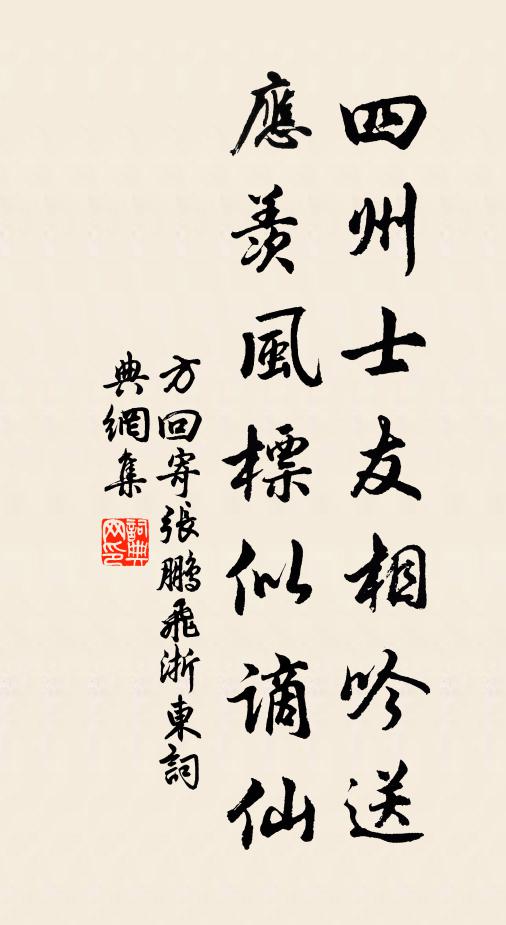 四州士友相吟送
應羨風標似謫仙
方回寄張鵬飛浙東詞
典網集
詞典
网印